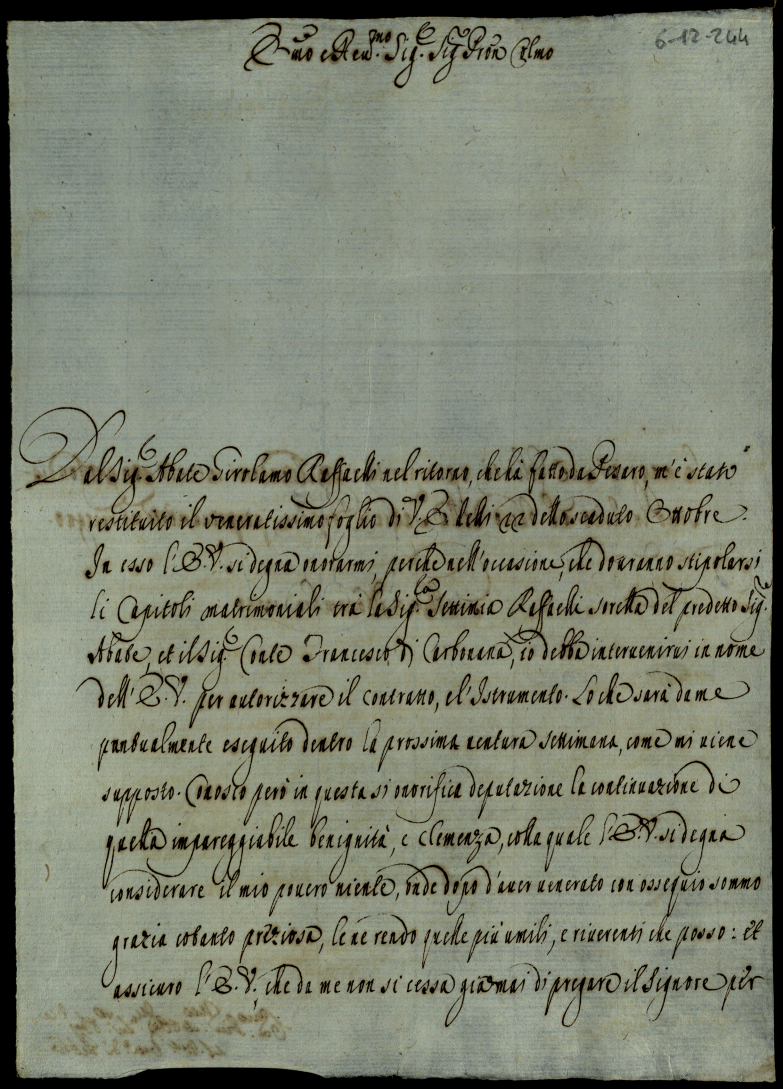 Emo e Rev.mo Sig.e Sig.r Pron Colmo
6-12-244
Dal Sig.e Abate Girolamo Raffaelli nel ritorno, che hà fatto da Pesaro, m'è stato
restituito il veneratissimo foglio di V. E. delli 22 dello scaduto Ottobre.
In esso l'E.V. si degna onorarmi, perche nell'occasione, che dovranno stipolarsi
li Capitoli matrimoniali trà la Sig.ra Settimia Raffaelli sorella del predetto Sig.re
Abate, et il Sig.e Conte Francesco di Carbonana, io debba intervenirvi in nome
dell'E.V. per autorizzare il contratto, e l'Istrumento. Lo che sarà da me
puntualmente eseguito dentro la prossima ventura settimana, come mi viene
supposto. Conosco però in questa sì onorifica deputazione la continuazione di
quella impareggiabile benignità, e clemenza, colla quale l'E.V. si degna
considerare il mio povero niente, onde dopo d'aver venerato con ossequio sommo
grazia cotanto preziosa, le ne rendo quelle più umili, e riverenti che posso: et
assicuro l'E.V., che da me non si cessa giamai di pregare il Signore per